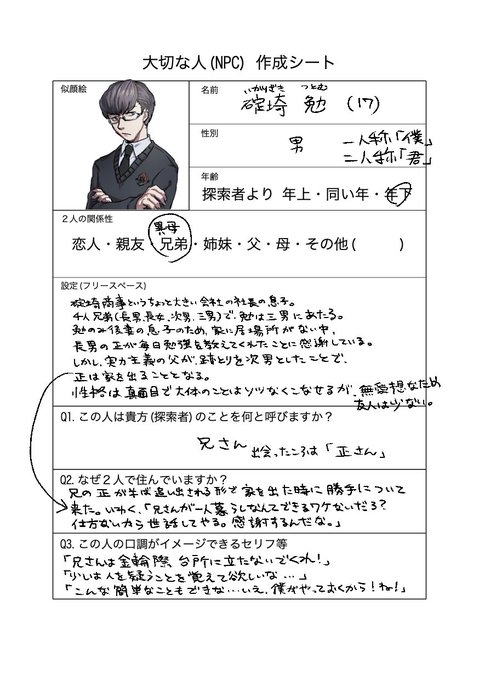 大切な人(NPC) 作成シート
似顔絵
名前
いかりざき つとむ
碇埼 勉 (17)
性別
男
一人称「僕」
二人称「君」
年齢
探索者より 年上・同い年・年下
2人の関係性
異母
恋人・親友・兄弟・姉妹・父・母・その他( )
設定(フリースペース)
碇埼商事というちょっと大きい会社の社長の息子。
4人兄弟(長男、長女、次男、三男)で、勉は三男にあたる。
勉のみ後妻の息子のため、家に居場所がない中、
長男の正が毎日勉強を教えてくれたことに感謝している。
しかし、実力主義の父が、跡とりを次男としたことで、
正は家を出ることとなる。
性格は真面目で大体のことはソツなくこなせるが、無愛想なため
友人は少ない。
Q1. この人は貴方(探索者)のことを何と呼びますか?
兄さん
出会ったころは「正さん」
Q2. なぜ2人で住んでいますか?
兄の正が半ば追い出される形で家を出た時に勝手について
来た。いわく、「兄さんが一人暮らしなんてできるワケないだろ?
仕方ないから世話してやる。感謝するんだな。」
Q3. この人の口調がイメージできるセリフ等
「兄さんは金輪際、台所に立たないでくれ!」
「少しは人を疑うことを覚えて欲しいな…」
「こんな簡単なこともできな…いえ、僕がやっておくから!ね!」